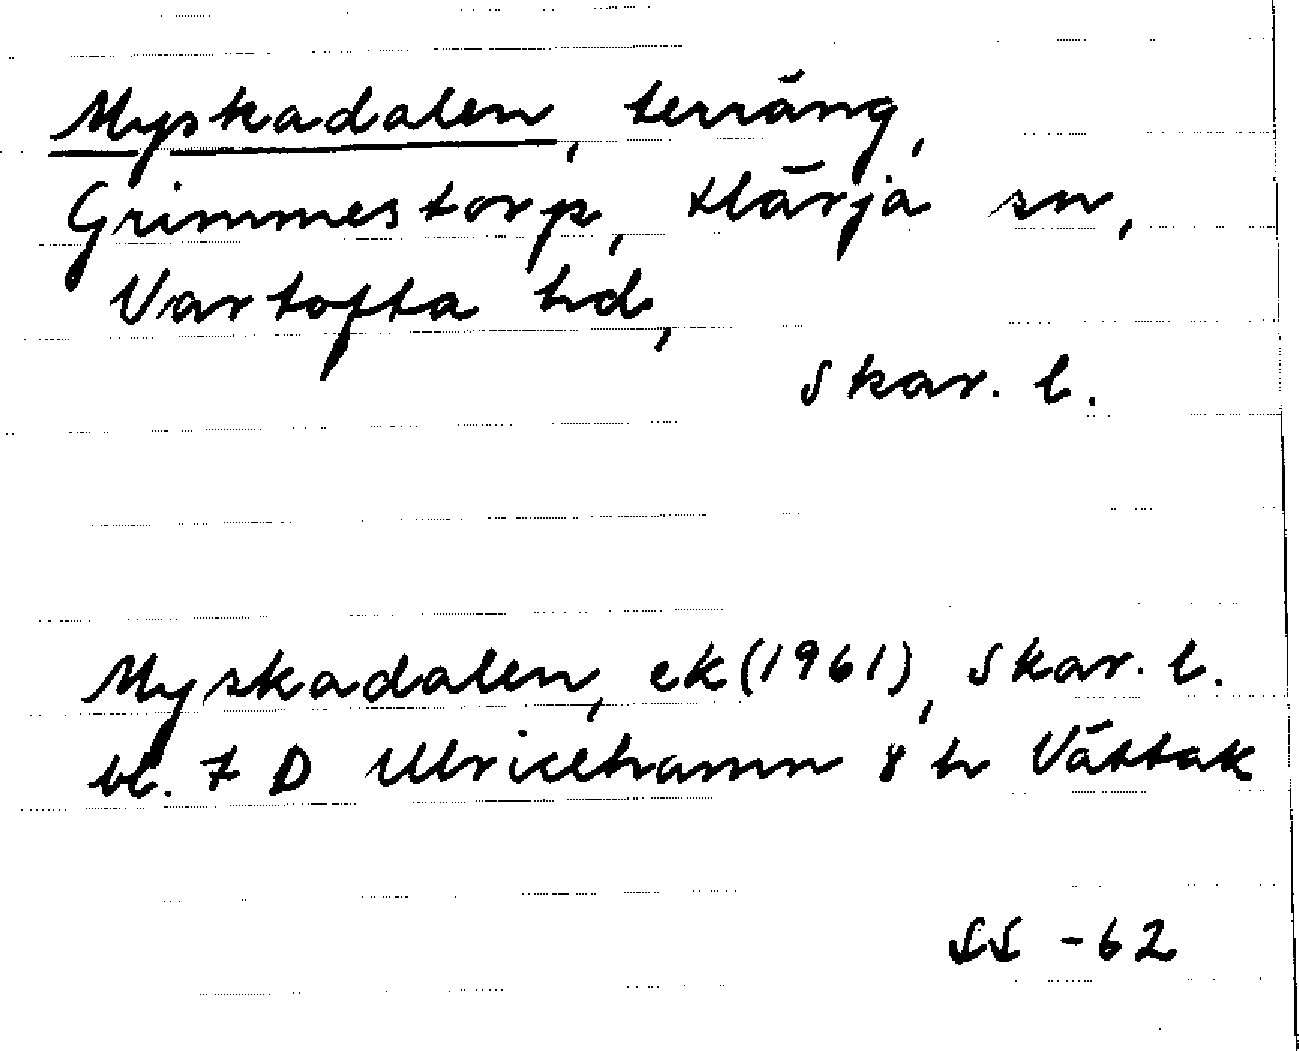 Myskadalen, terräng,
Grimmestorp, Härja sn,
Vartofta hd,
Skar. l.
Myskadalen, ek (1961), Skar. l.
bl. 7 D Ulricehamn 8 h Vättak
SS -62